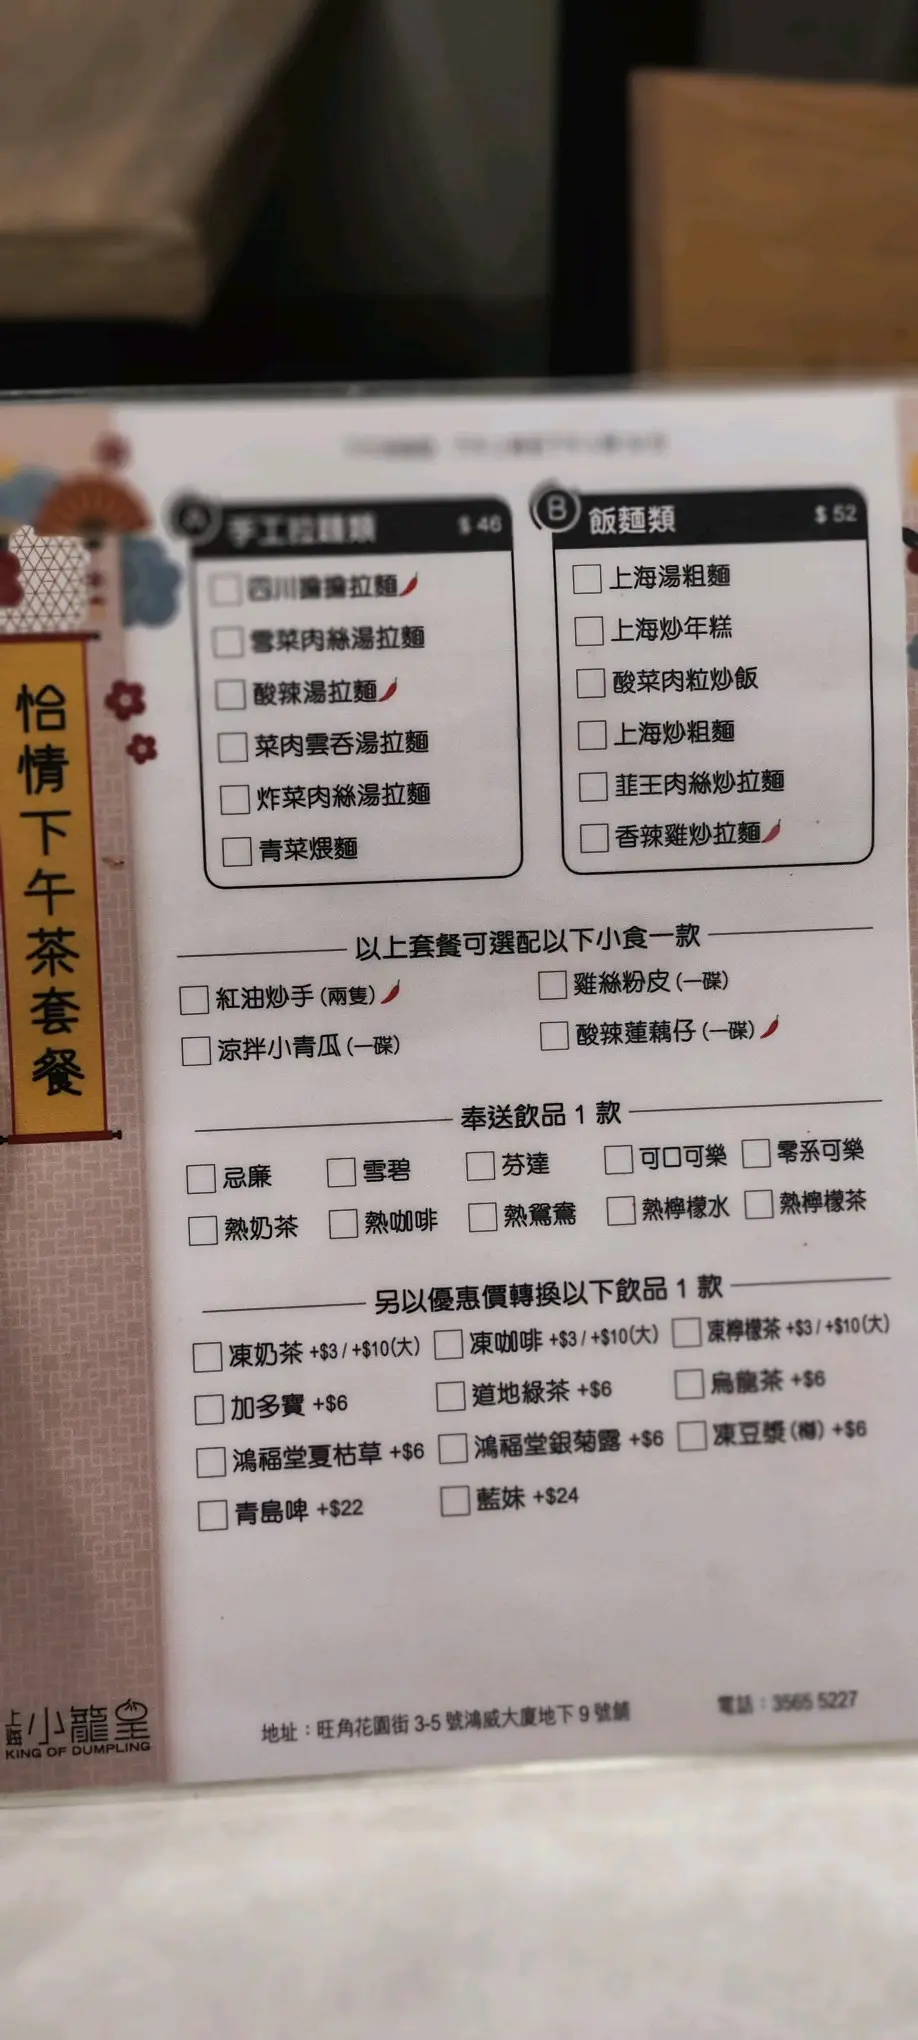 怡情下午茶套餐
A 手工拉麵類 $46
四川擔擔拉麵
雪菜肉絲湯拉麵
酸辣湯拉麵
菜肉雲吞湯拉麵
炸菜肉絲湯拉麵
青菜煨麵
B 飯麵類 $52
上海湯粗麵
上海炒年糕
酸菜肉粒炒飯
上海炒粗麵
韮王肉絲炒拉麵
香辣雞炒拉麵
以上套餐可選配以下小食一款
紅油炒手(兩隻) 雞絲粉皮(一碟)
涼拌小青瓜(一碟) 酸辣蓮藕仔(一碟)
奉送飲品1款
忌廉 雪碧 芬達 可口可樂 零系可樂
熱奶茶 熱咖啡 熱鴛鴦 熱檸檬水 熱檸檬茶
另以優惠價轉換以下飲品1款
凍奶茶 +$3/+$10(大) 凍咖啡 +$3/+$10(大) 凍檸檬茶 +$3/+$10(大)
加多寶 +$6 道地綠茶 +$6 烏龍茶 +$6
鴻福堂夏枯草 +$6 鴻福堂銀菊露 +$6 凍豆漿(樽) +$6
青島啤 +$22 藍妹 +$24
上海小籠皇
KING OF DUMPLING
地址：旺角花園街3-5號鴻威大廈地下9號舖 電話：3565 5227